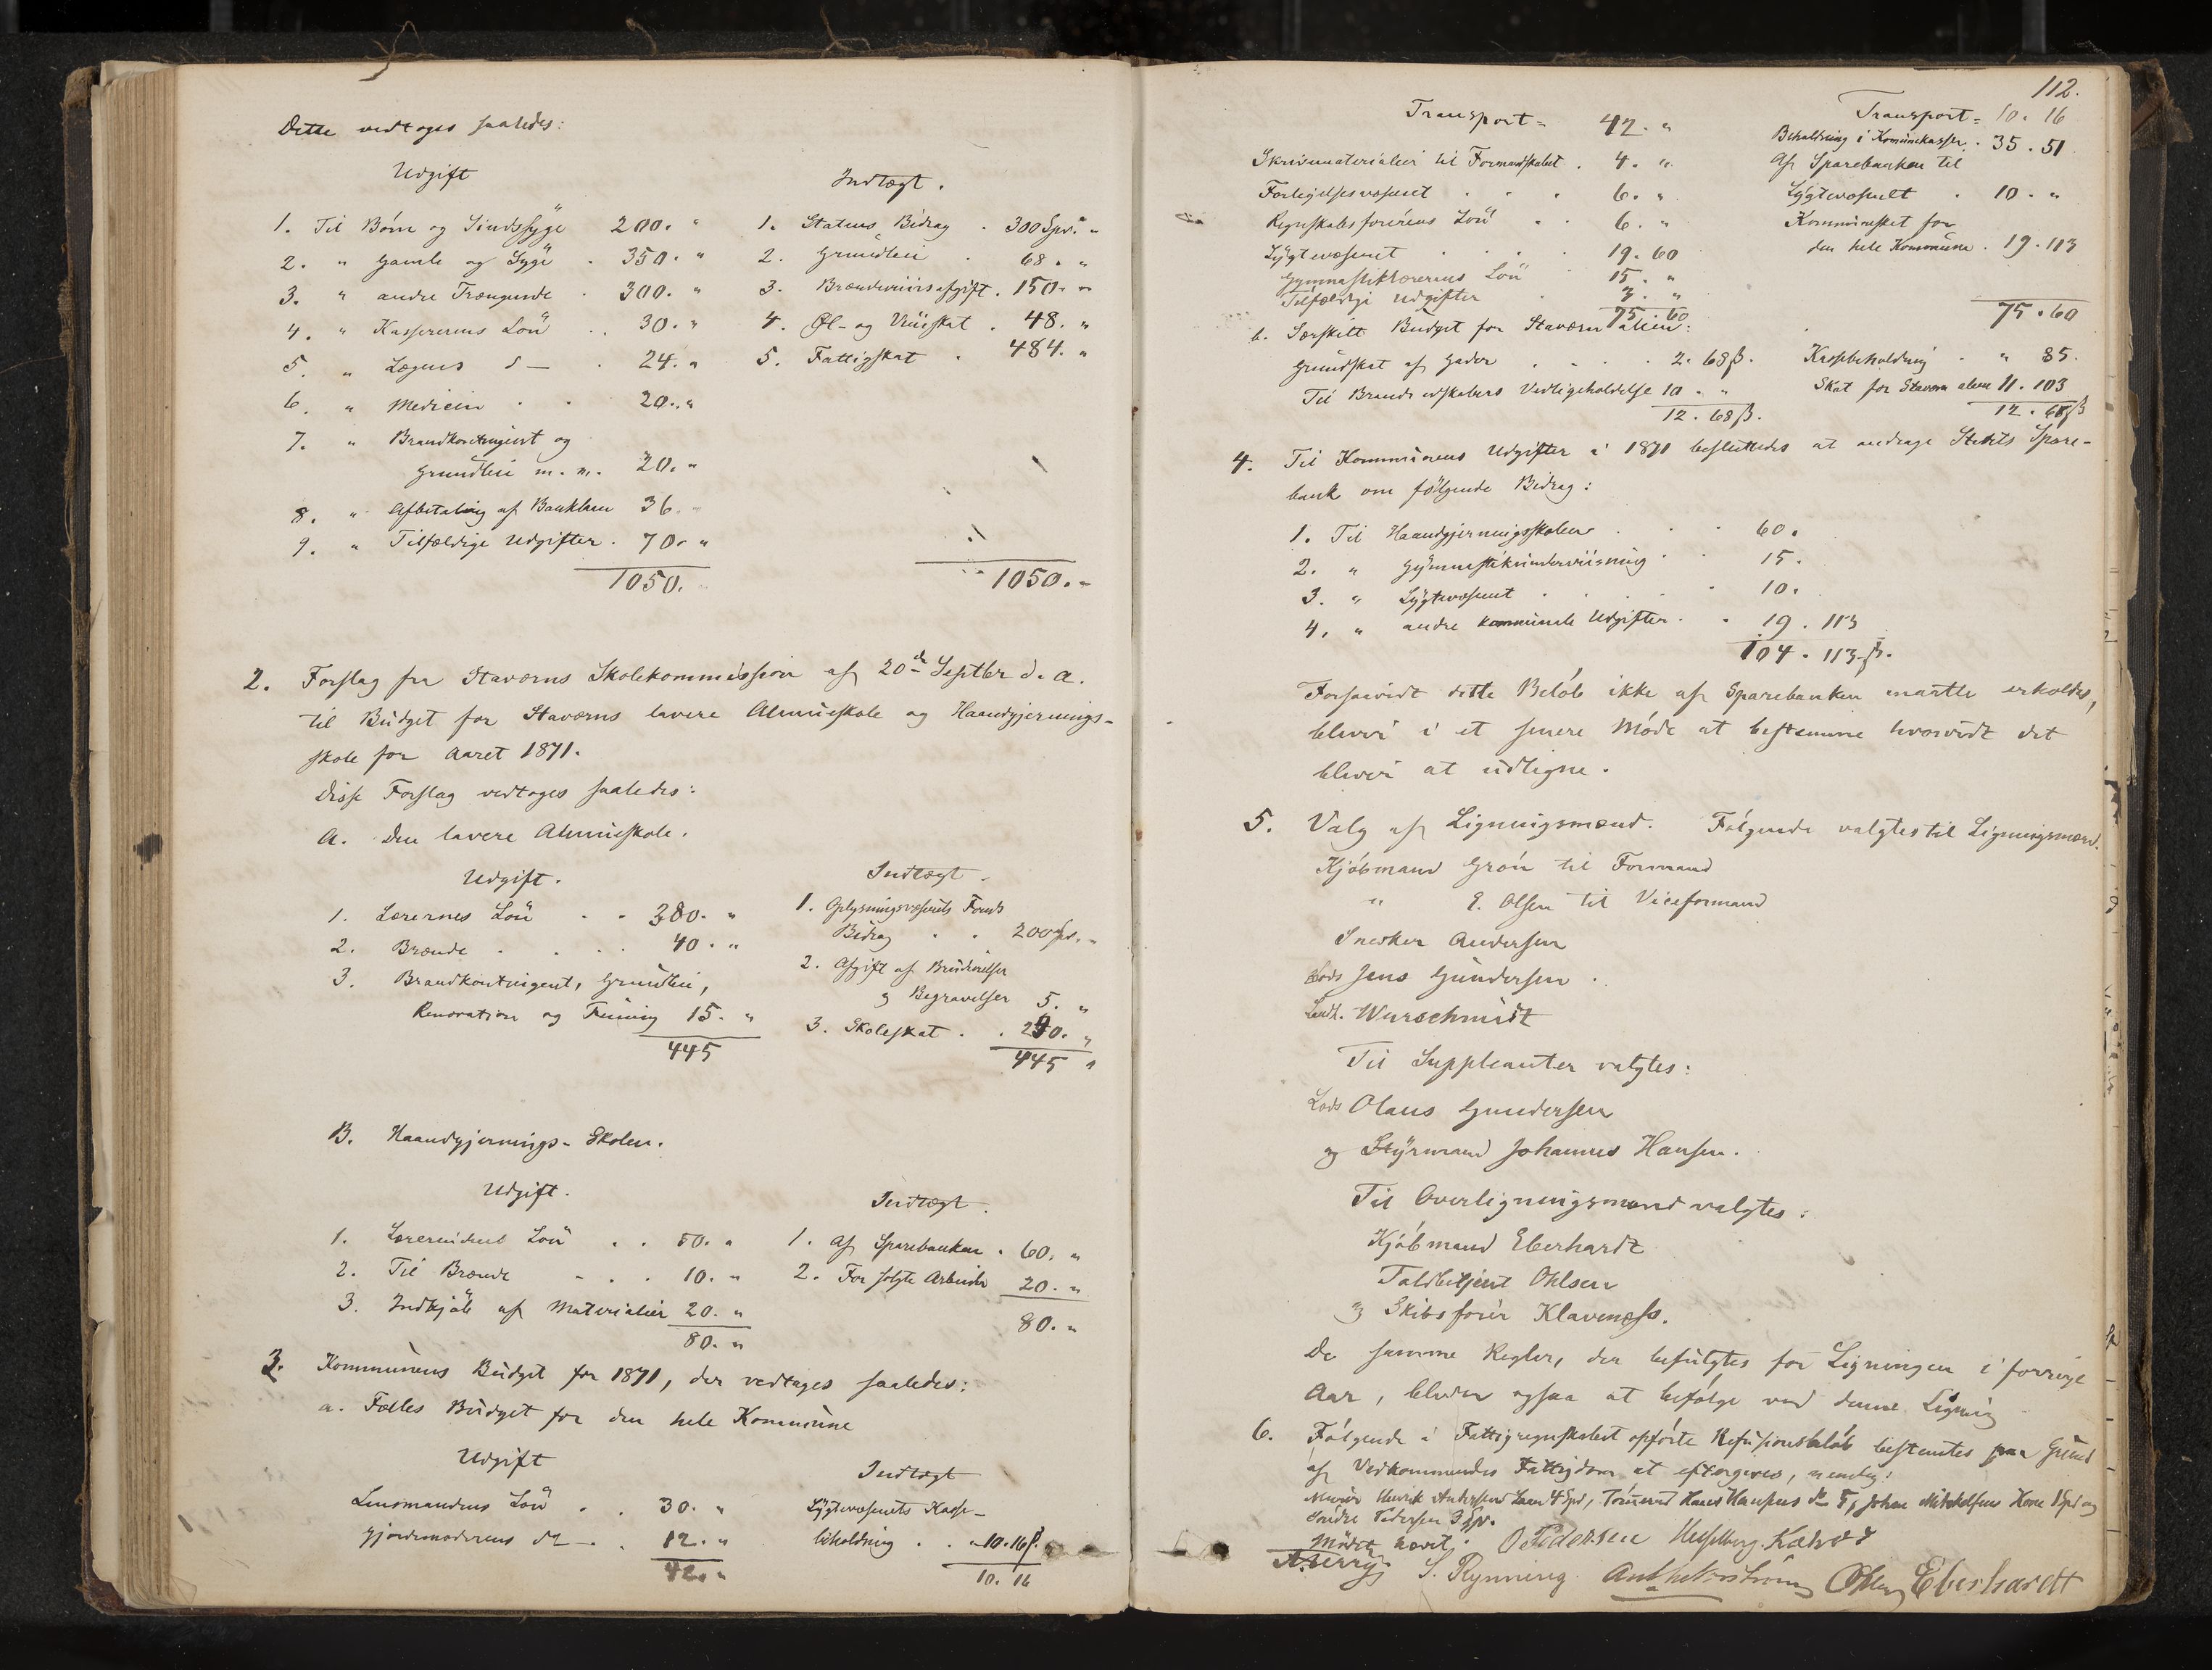 Dette vedtoges saaledes:
Udgift
1. Til Børn og Sindssyge 200. "
2. " Gamle og Syge . 350. "
3. " andre Trængende . 300. "
4. " Kassererens Løn . . 30. "
5. " Lægens d— . 24. "
6. " Medicin . . 20. "
7. " Brandkontingent og
Grundleie m. m. 20. "
8. " Afbetaling af Banklaan 36. "
9. " Tilfældige Udgifter . 70. "
1050.
Indtægt.
1. Statens Bidrag . 300 Spd. "
2. Grundleie . 68. "
3. Brændeviinsafgift . 150. "
4. Øl- og Viinskat . 48. "
5. Fattigskat . 484. "
1050. "
2. Forslag fra Staværns Skolekommission af 20de Septbr d. A.
til Budget for Staværns lavere Almueskole og Haandgjernings-
skole for Aaret 1871.
Disse Forslag vedtoges saaledes:
A. Den lavere Almueskole.
Udgift.
1. Lærernes Løn . . 380. "
2. Brænde . . . . 40. "
3. Brandkontingent, Grundleie,
Renovation og Feining 15. "
445
Indtægt.
1. Oplysningsvæsenets Fonds
Bidrag . . 200 Spd. "
2. Afgift af Brudevielser
og Begravelser 5. "
3. Skoleskat . . 240. "
445 "
B. Haandgjernings-Skolen.
Udgift.
1. Lærerindens Løn . . 50. "
2. Til Brænde . . . 10. "
3. Indkjøb af Materialier 20. "
80. "
Indtægt.
1. Af Sparebanken . 60. "
2. For solgte Arbeider 20. "
80. "
3. Kommunens Budget for 1871, der vedtages saaledes:
a. Fælles Budget for den hele Kommune
Udgift
Lensmandens Løn . . 30. "
Gjordemoderens do . . 12. "
42. "
Indtægt
Lygtevæsenets Kasse-
beholdning . . 10. 16 ß.
10. 16
112.
Transport = 42. "
Skrivematerialier til Formandskabet . 4. "
Forligelsesvæsenet . . . 6. "
Regnskabsførerens Løn . . 6. "
Lygtevæsenet . . . . 19. 60
Gymnastiklærerens Løn . 15. "
Tilfældige Udgifter . 3. "
75. 60
Transport = 10. 16
Beholdning i Komunekassen . 35. 51
Af Sparebanken til
Lygtevæsenet . 10. "
Kommuneskat for
den hele Kommune . 19. 113
75. 60
b. Særskilt Budget for Staværn alene:
Grundskat af Gader . . . 2. 68 ß.
Til Brandredskabers Vedligeholdelse 10. "
12. 68 ß.
Kassebeholdning . " 85.
Skat for Staværn alene 11. 103
12. 68 ß
4. Til Kommunens Udgifter i 1871 besluttedes at andrage Stedets Spare-
bank om følgende Bidrag:
1. Til Haandgjerningsskolen . . . 60.
2. " Gymnastikunderviisning . . 15.
3. " Lygtevæsenet . . . . 10.
4. " andre kommunale Udgifter . . 19. 113
104. 113 ß.
Forsaavidt dette Beløb ikke af Sparebanken maatte erholdes,
bliver i et senere Møde at bestemme hvorvidt det
bliver at udligne.
5. Valg af Ligningsmænd. Følgende valgtes til Ligningsmænd.
Kjøbmand Grøn til Formand
" E. Olsen til Viceformand
Snedker Andersen
Lods Jens Gundersen.
Landh. Wurschmidt
Til Suppleanter valgtes:
Lods Olaus Gundersen
og Styrmand Johannes Hansen.
Til Overligningsmænd valgtes:
Kjøbmand Eberhardt
Toldbetjent Ohlsen
og Skibsfører Klavenæss.
De samme Regler, der befulgtes for Ligningen i forrige
Aar, bliver ogsaa at befølge ved denne Ligning
6. Følgende i Fattigregnskabet opførte Refusionsbeløb bestemtes paa Grund
af Vedkommendes Fattigdom at eftergives, nemlig:
Henrik Andersens 4 Spd, Tømmermand Hans Hansens do 5, Johan Mikkelsens Kone 1 Spd og
Sondre Pedersen 3 Spd.
Mødet hævet.
O Pedersen Hesselberg. Kahrs
S. Rynning. Ohlsen Eberhardt